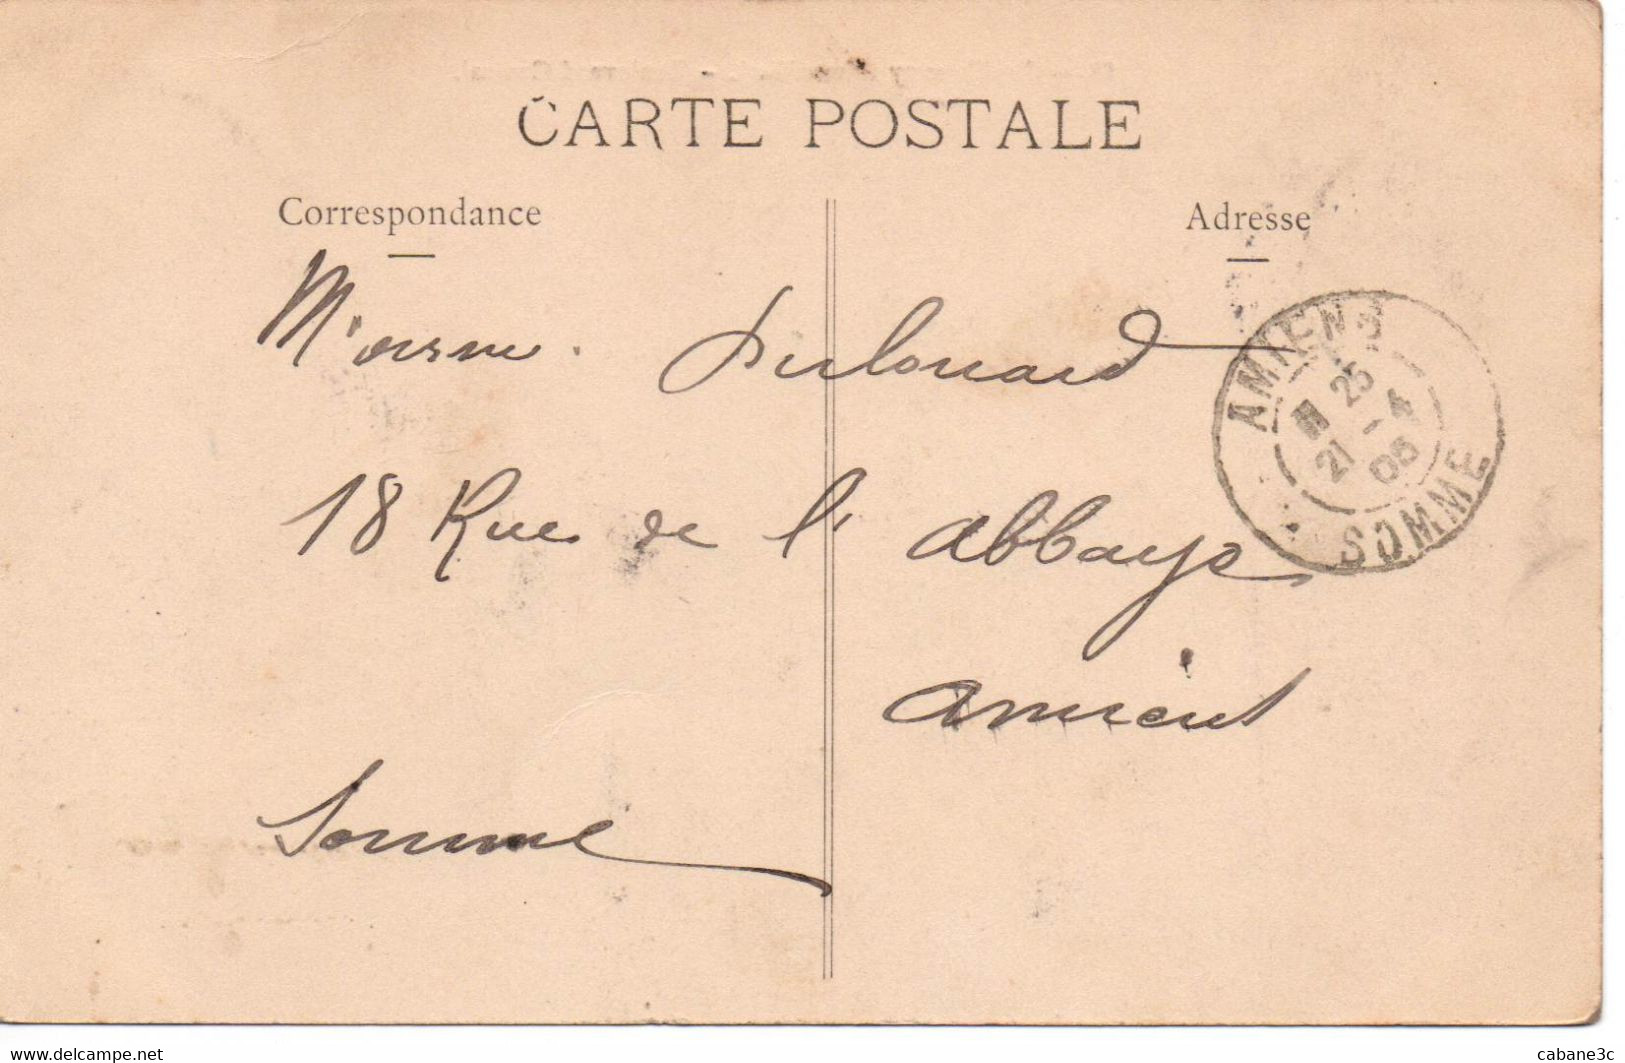 CARTE POSTALE
Correspondance
Adresse
18 Rue de l' Abbaye
Amiens
Somme
AMIENS
SOMME
21 - 4
www.delcampe.net
cabane3c